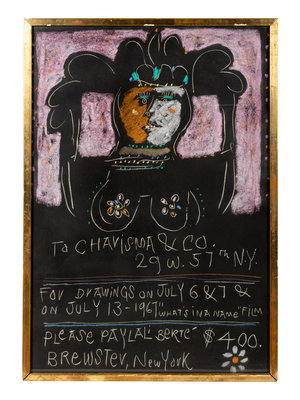 To CHARISMA & CO.
29 W. 57TH N.Y.
FOR DRAWINGS ON JULY 6 & 7 &
ON JULY 13-1967 "WHAT'S IN A NAME" FILM
PLEASE PAY LAL' BERTÉ $400.
BREWSTER, New York